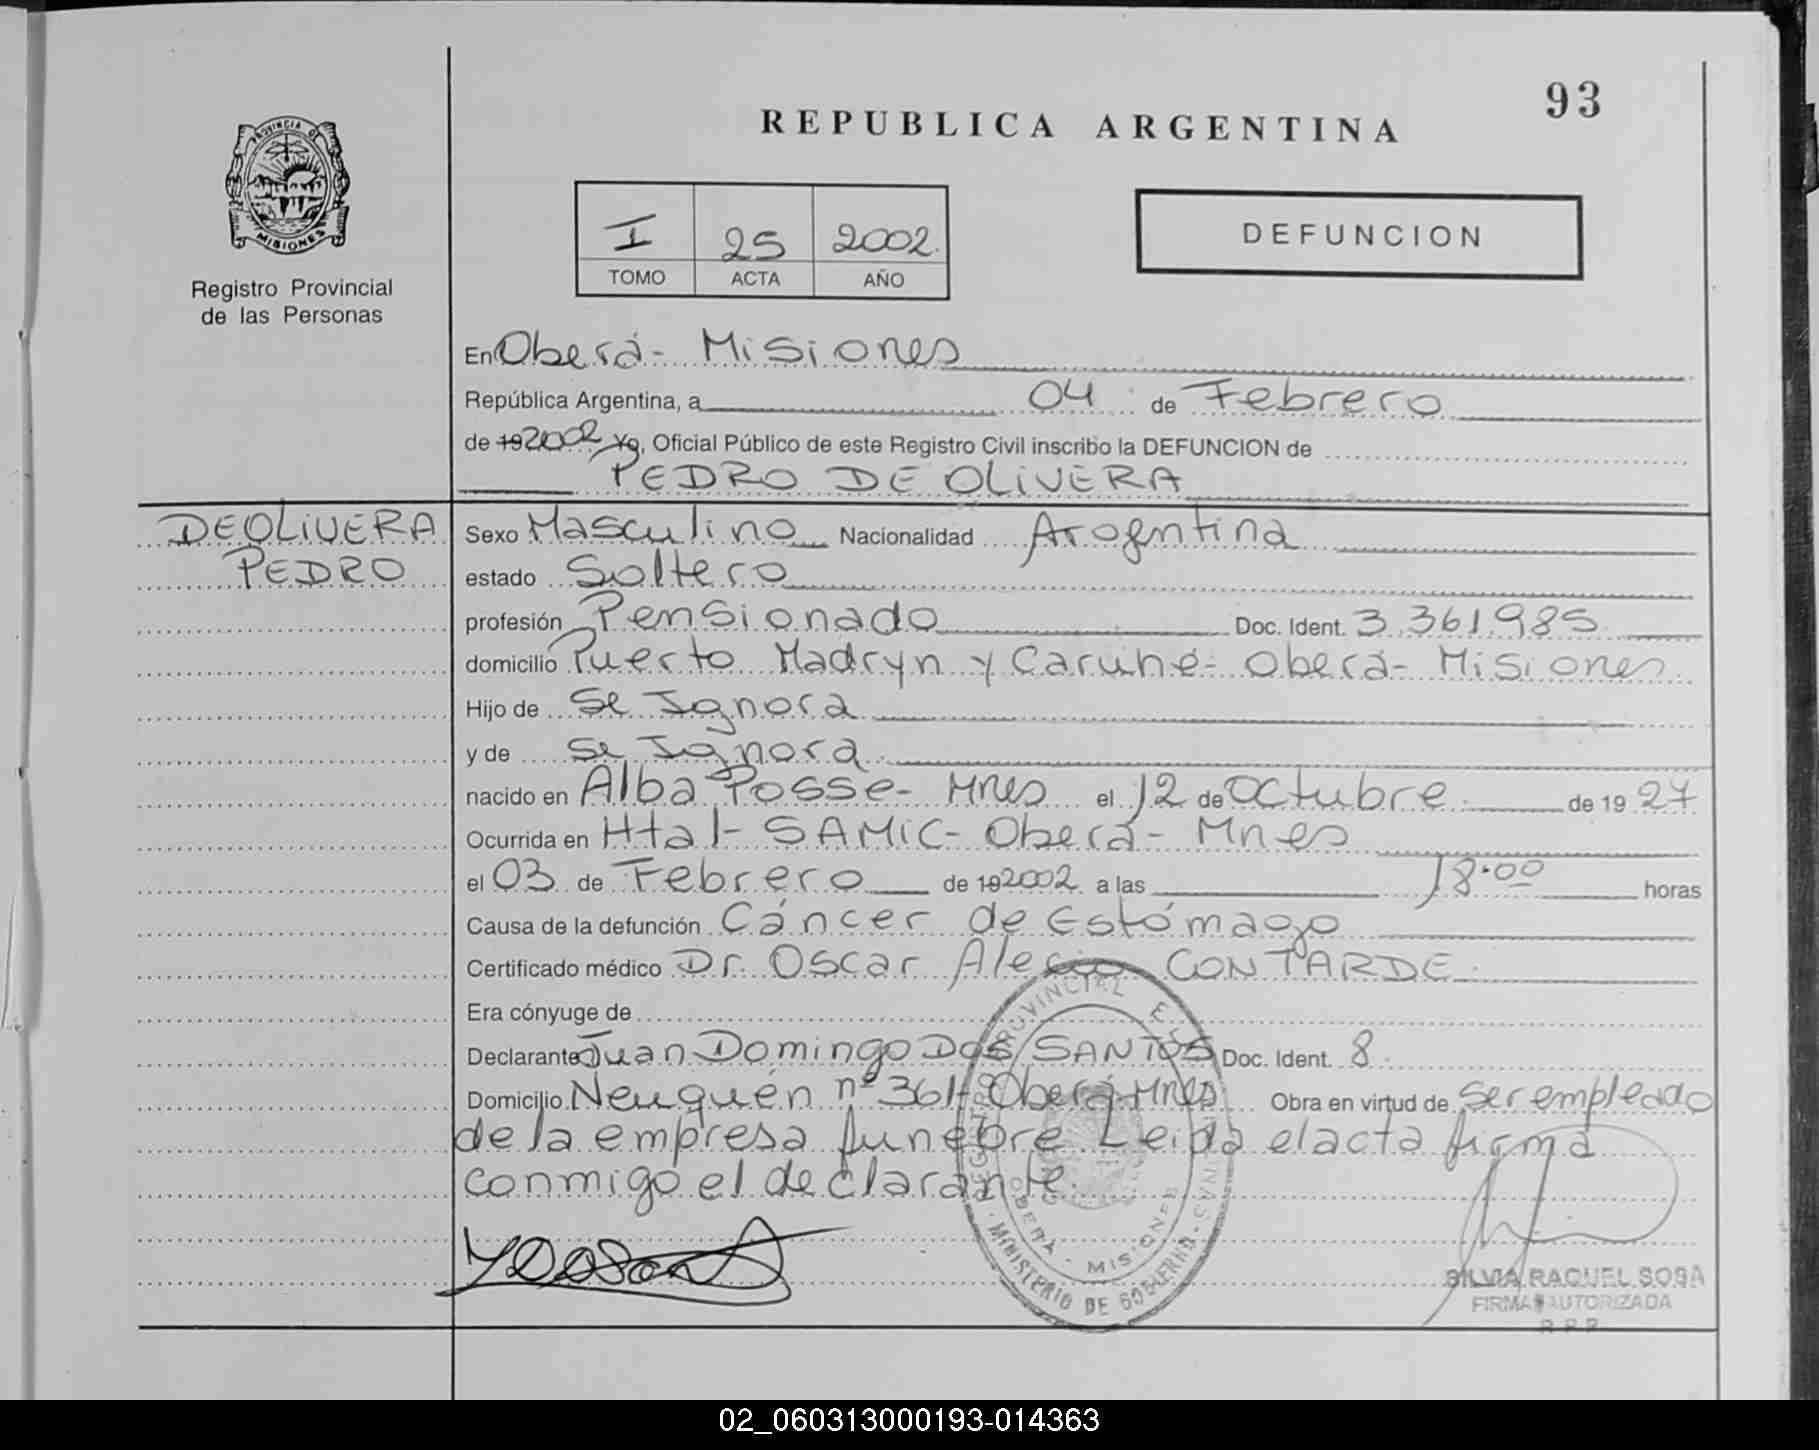 93
REPUBLICA ARGENTINA
PROVINCIA DE
MISIONES
Registro Provincial
de las Personas
I 25 2002.
TOMO ACTA AÑO
DEFUNCION
En Oberá- Misiones
República Argentina, a 04 de Febrero
de 192002 Yo, Oficial Público de este Registro Civil inscribo la DEFUNCION de
PEDRO DE OLIVERA
DEOLIVERA
PEDRO
Sexo Masculino Nacionalidad Argentina
estado Soltero
profesión Pensionado Doc. Ident. 3.361.985
domicilio Puerto Madryn y Caruhé- Oberá- Misiones
Hijo de Se Ignora
y de Se Ignora
nacido en Alba Posse- Mnes el 12 de Octubre de 19 27
Ocurrida en Htal- SAMIC- Oberá- Mnes
el 03 de Febrero de 192002 a las 18.00 horas
Causa de la defunción Cáncer de Estómago
Certificado médico Dr. Oscar CONTARDE
Era cónyuge de
Declarante Juan Domingo DOS SANTOS Doc. Ident. 8.
Domicilio Neuquén nº 361- Oberá-Mnes Obra en virtud de ser empleado
de la empresa funebre Leida el acta firma
conmigo el declarante.
REGISTRO PROVINCIAL
OBERÁ - MISIONES
MINISTERIO DE GOBIERNO
SILVIA RAQUEL SOSA
FIRMA AUTORIZADA
R.P.P.
02_060313000193-014363